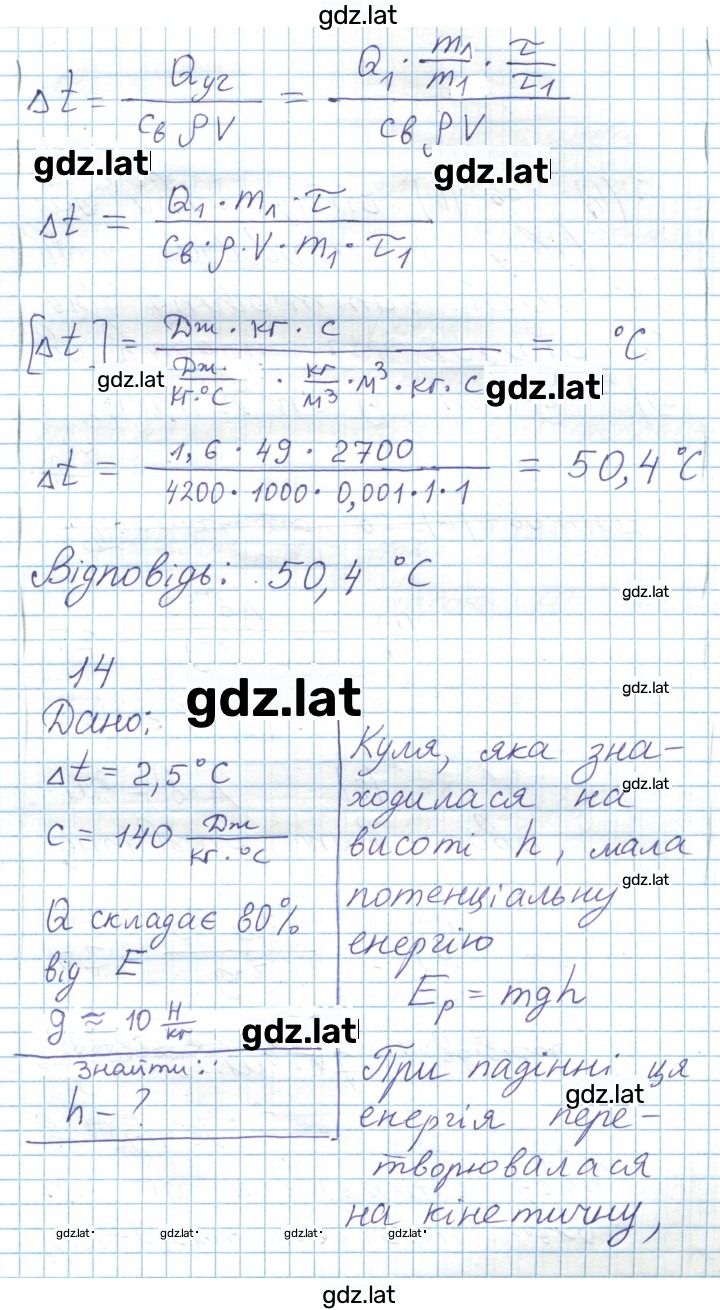 gdz.lat
Δt = Qуг / cв ρV = Q₁ · mл/m₁ · τ/τ₁ / cв ρV
gdz.lat gdz.lat
Δt = Q₁ · mл · τ / cв · ρ · V · m₁ · τ₁
[Δt] = Дж · кг · с / Дж/кг·°C · кг/м³ · м³ · кг · с = °C
gdz.lat gdz.lat
Δt = 1,6 · 49 · 2700 / 4200 · 1000 · 0,001 · 1 · 1 = 50,4 °C
Відповідь: 50,4 °C
gdz.lat
14
gdz.lat gdz.lat
Дано:
Δt = 2,5 °C
c = 140 Дж/кг·°C
Q складає 80%
від E
g ≈ 10 Н/кг
gdz.lat
Знайти:
h – ?
Куля, яка зна-
gdz.lat
ходилася на
висоті h, мала
gdz.lat
потенціальну
енергію
Eр = mgh
При падінні ця
gdz.lat
енергія пере-
творювалася
на кінетичну,
gdz.lat· gdz.lat· gdz.lat· gdz.lat·
gdz.lat